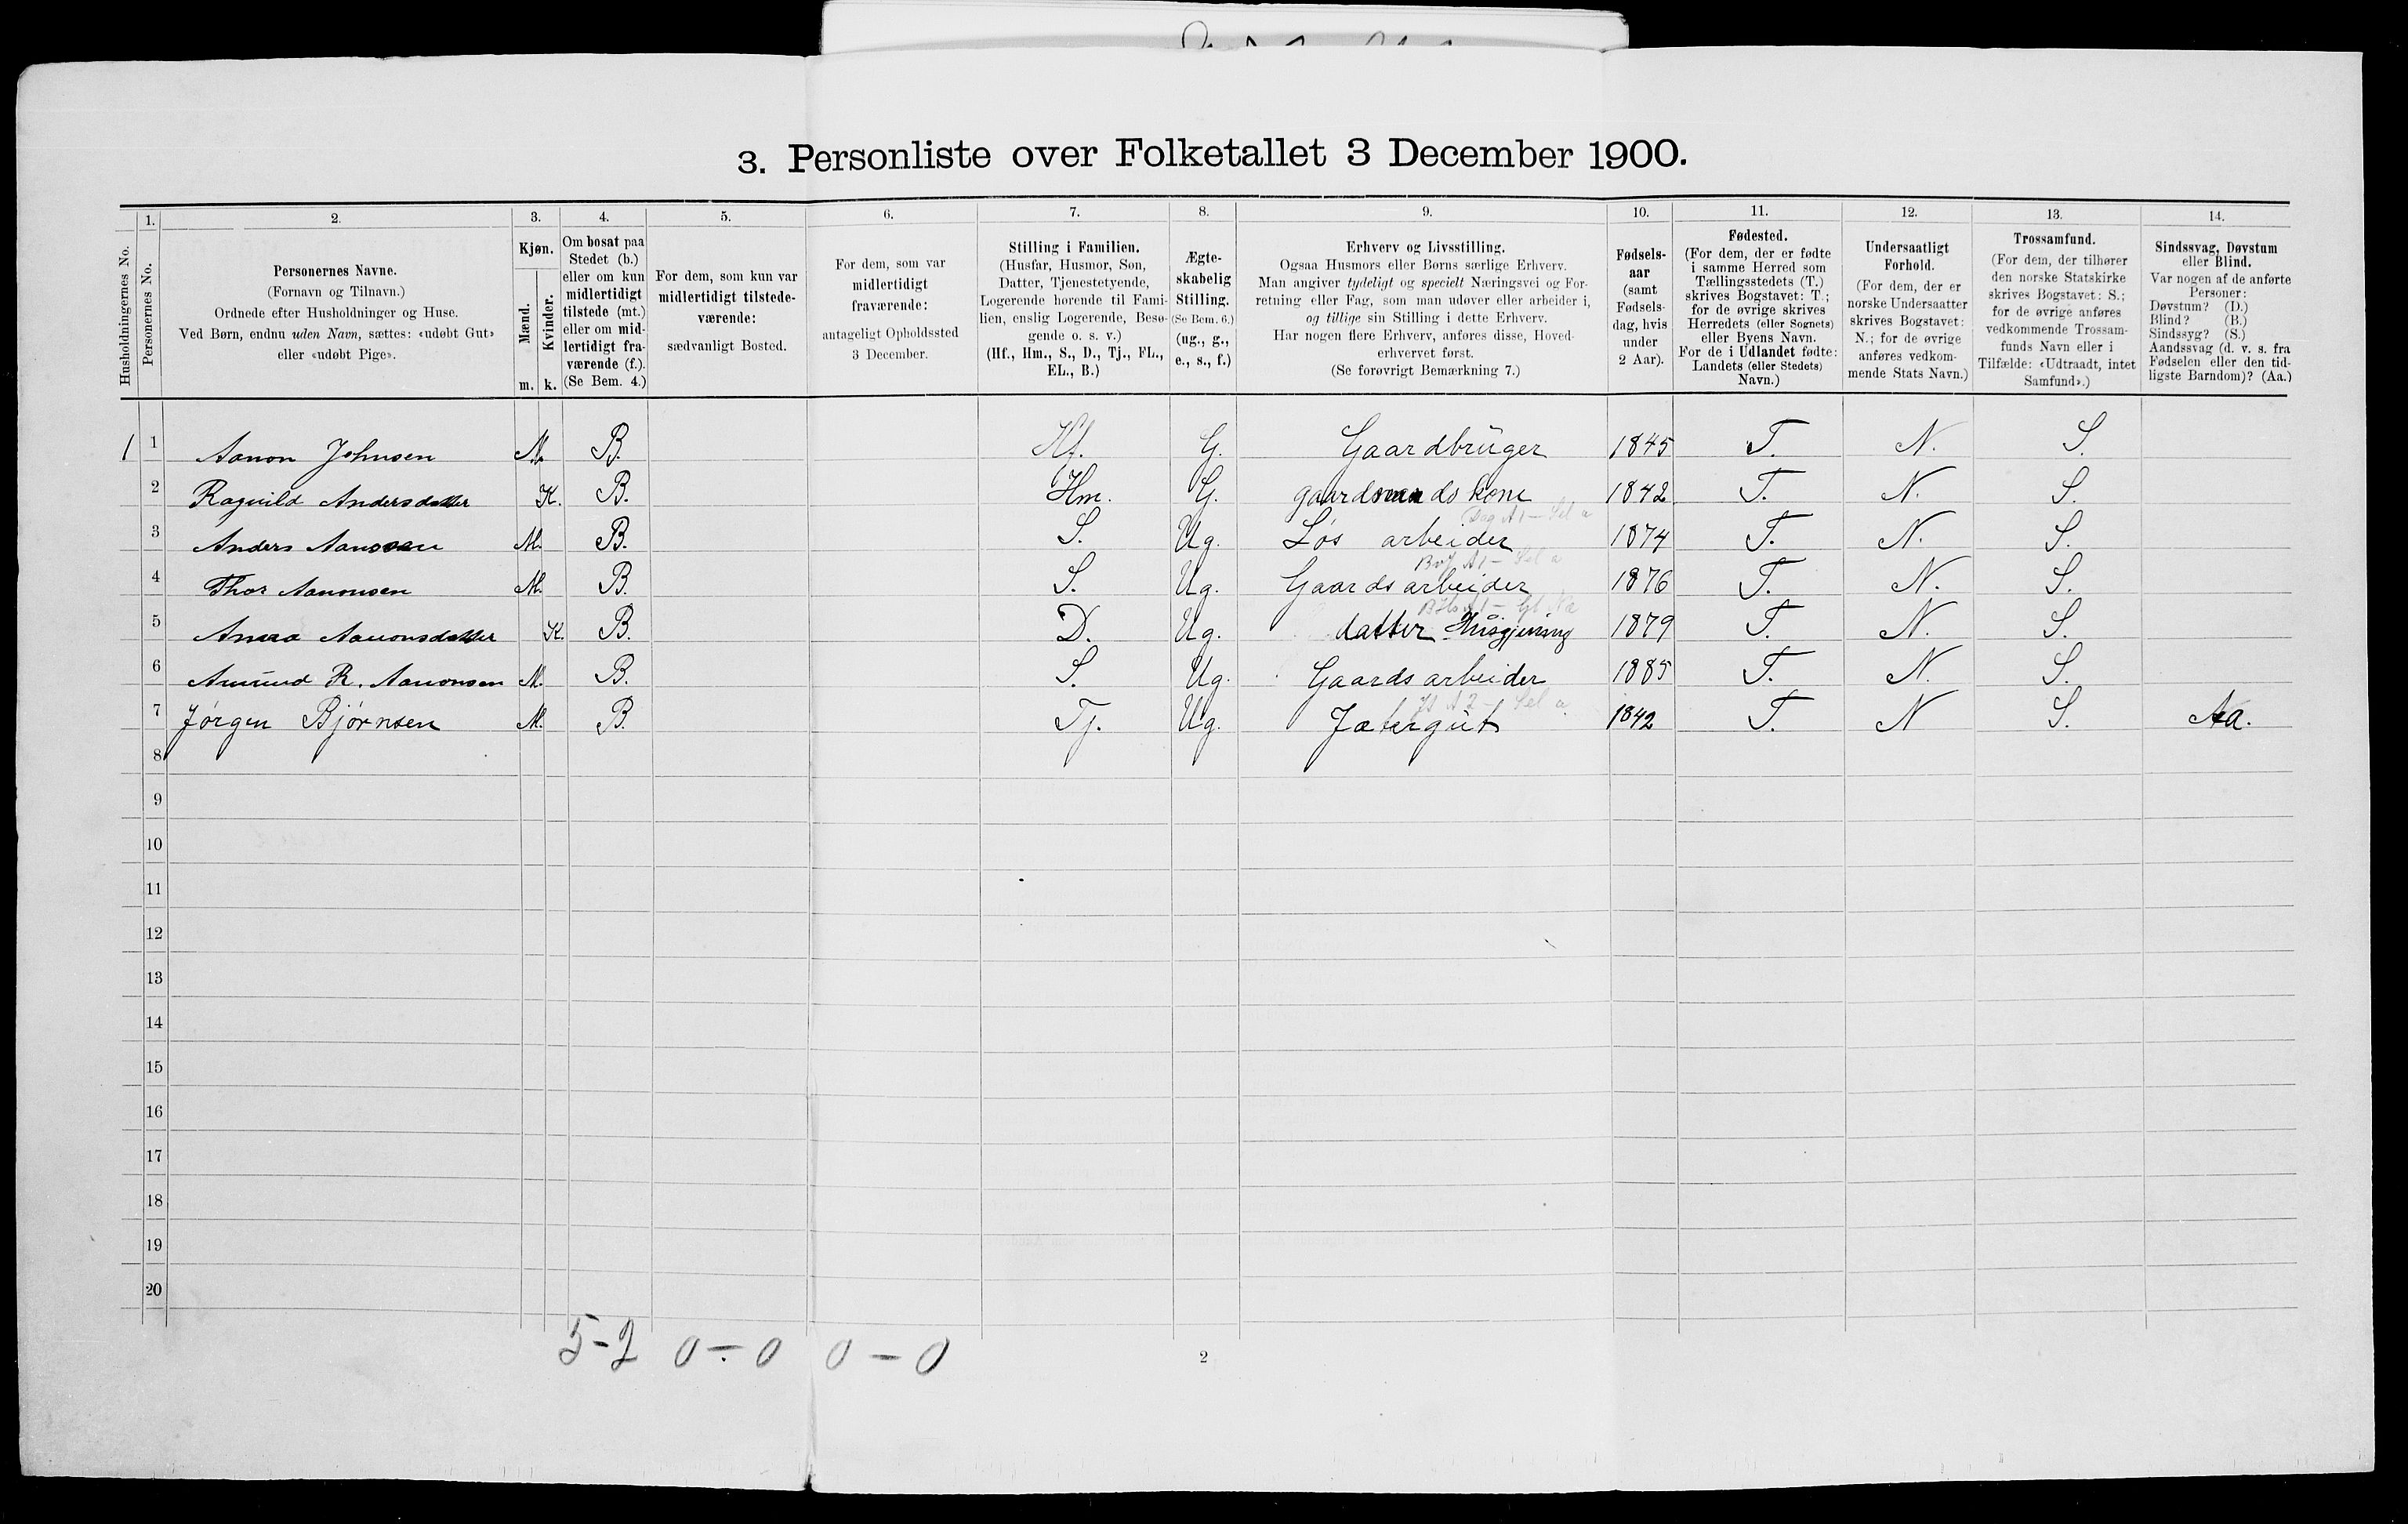 3. Personliste over Folketallet 3 December 1900.
Husholdningernes No.
1.
Personernes No.
2.
Personernes Navne.
(Fornavn og Tilnavn.)
Ordnede efter Husholdninger og Huse.
Ved Børn, endnu uden Navn, sættes: «udøbt Gut»
eller «udøbt Pige».
3.
Kjøn.
Mænd.
Kvinder.
m. k.
4.
Om bosat paa
Stedet (b.)
eller om kun
midlertidigt
tilstede (mt.)
eller om mid-
lertidigt fra-
værende (f.).
(Se Bem. 4.)
5.
For dem, som kun var
midlertidigt tilstede-
værende:
sædvanligt Bosted.
6.
For dem, som var
midlertidigt
fraværende:
antageligt Opholdssted
3 December.
7.
Stilling i Familien.
(Husfar, Husmor, Søn,
Datter, Tjenestetyende,
Logerende hørende til Fami-
lien, enslig Logerende, Besø-
gende o. s. v.)
(Hf., Hm., S., D., Tj., FL.,
EL., B.)
8.
Ægte-
skabelig
Stilling.
(Se Bem. 6.)
(ug., g.,
e., s., f.)
9.
Erhverv og Livsstilling.
Ogsaa Husmors eller Børns særlige Erhverv.
Man angiver tydeligt og specielt Næringsvei og For-
retning eller Fag, som man udøver eller arbeider i,
og tillige sin Stilling i dette Erhverv.
Har nogen flere Erhverv, anføres disse, Hoved-
erhvervet først.
(Se forøvrigt Bemærkning 7.)
10.
Fødsels-
aar
(samt
Fødsels-
dag, hvis
under
2 Aar).
11.
Fødested.
(For dem, der er fødte
i samme Herred som
Tællingsstedets (T.)
skrives Bogstavet: T.;
for de øvrige skrives
Herredets (eller Sognets)
eller Byens Navn.
For de i Udlandet fødte:
Landets (eller Stedets)
Navn.)
12.
Undersaatligt
Forhold.
(For dem, der er
norske Undersaatter
skrives Bogstavet:
N.; for de øvrige
anføres vedkom-
mende Stats Navn.)
13.
Trossamfund.
(For dem, der tilhører
den norske Statskirke
skrives Bogstavet: S.;
for de øvrige anføres
vedkommende Trossam-
funds Navn eller i
Tilfælde: «Udtraadt, intet
Samfund».)
14.
Sindssvag, Døvstum
eller Blind.
Var nogen af de anførte
Personer:
Døvstum? (D.)
Blind? (B.)
Sindssyg? (S.)
Aandssvag (d. v. s. fra
Fødselen eller den tid-
ligste Barndom)? (Aa.)
1 1 Aanon Johnsen M. B. Hf. G. Gaardbruger 1845 T. N. S.
2 Ragnild Andersdatter K. B. Hm. G. gaardmands kone 1842 T. N. S.
3 Anders Aanonsen M. B. S. Ug. Løs arbeider 1874 T. N. S.
4 Thor Aanonsen M. B. S. Ug. Gaards arbeider 1876 T. N. S.
5 Anna Aanonsdatter K. B. D. Ug. datter Husgjerning 1879 T. N. S.
6 Amund R. Aanonsen M. B. S. Ug. Gaards arbeider 1885 T. N. S.
7 Jørgen Bjørnsen M. B. Tj. Ug. Jætergut 1842 T. N S. Aa.
8
9
10
11
12
13
14
15
16
17
18
19
20
5-2 0-0 0-0
2